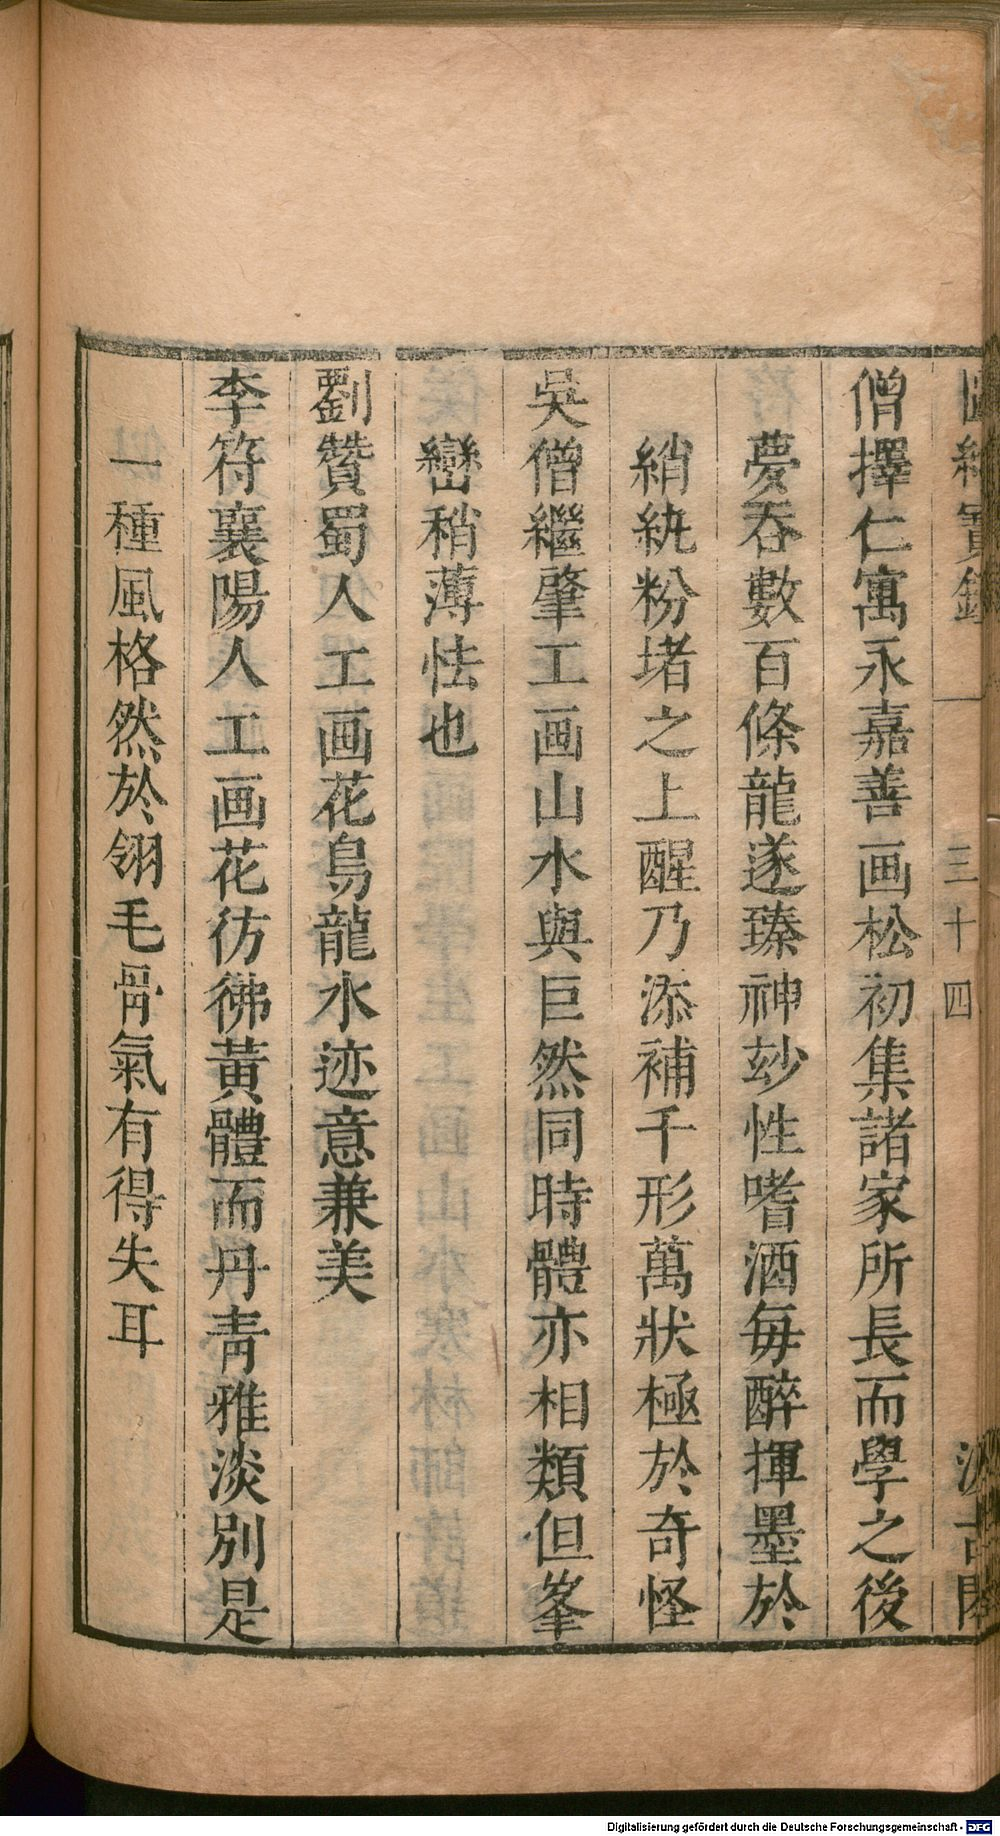 圖繪寶鑑 三十四 汲古閣
僧擇仁寓永嘉善画松初集諸家所長而學之後
夢吞數百條龍遂臻神玅性嗜酒每醉揮墨於
綃紈粉堵之上醒乃添補千形萬狀極於奇怪
吳僧繼肇工画山水與巨然同時體亦相類但峯
巒稍薄怯也
劉贊蜀人工画花鳥龍水迹意兼美
李符襄陽人工画花彷彿黃體而丹靑雅淡別是
一種風格然於翎毛骨氣有得失耳
Digitalisierung gefördert durch die Deutsche Forschungsgemeinschaft - DFG